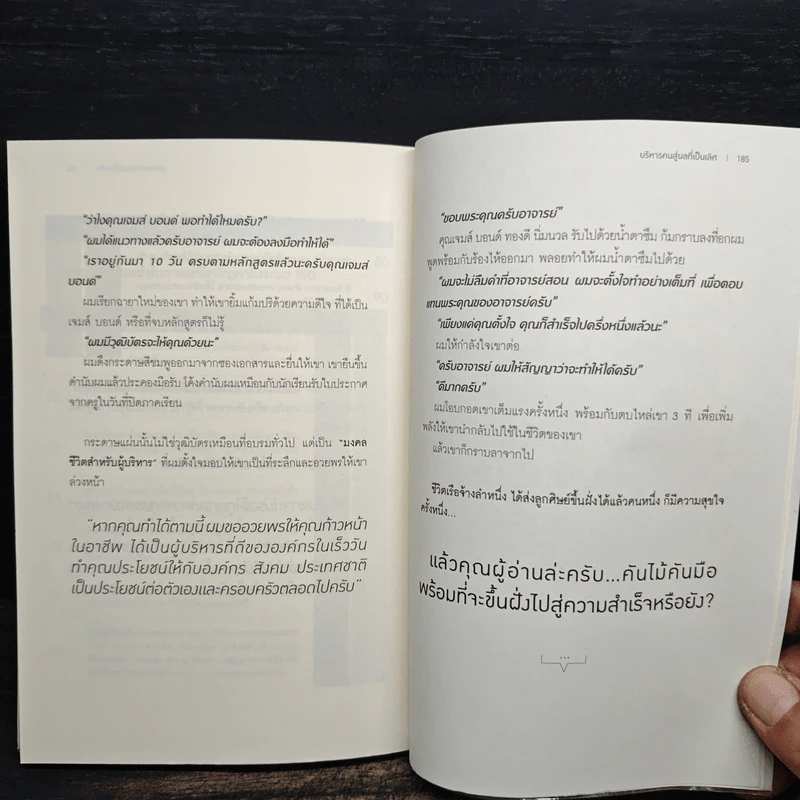 "ว่าไงคุณเจมส์ บอนด์ พอทำได้ไหมครับ?"
"ผมได้แนวทางแล้วครับอาจารย์ ผมจะต้องลงมือทำให้ได้"
"เราอยู่กันมา 10 วัน ครบตามหลักสูตรแล้วนะครับคุณเจมส์
บอนด์"
ผมเรียกฉายาใหม่ของเขา ทำให้เขายิ้มแก้มปริด้วยความดีใจ ที่ได้เป็น
เจมส์ บอนด์ หรือที่จบหลักสูตรก็ไม่รู้
"ผมมีวุฒิบัตรจะให้คุณด้วยนะ"
ผมดึงกระดาษสีชมพูออกมาจากซองเอกสารและยื่นให้เขา เขายืนขึ้น
คำนับผมแล้วประคองมือรับ โค้งคำนับผมเหมือนกับนักเรียนรับใบประกาศ
จากครูในวันที่ปิดภาคเรียน
กระดาษแผ่นนั้นไม่ใช่วุฒิบัตรเหมือนที่อบรมทั่วไป แต่เป็น "มงคล
ชีวิตสำหรับผู้บริหาร" ที่ผมตั้งใจมอบให้เขาเป็นที่ระลึกและอวยพรให้เขา
ล่วงหน้า
"หากคุณทำได้ตามนี้ ผมขออวยพรให้คุณก้าวหน้า
ในอาชีพ ได้เป็นผู้บริหารที่ดีขององค์กรในเร็ววัน
ทำคุณประโยชน์ให้กับองค์กร สังคม ประเทศชาติ
เป็นประโยชน์ต่อตัวเองและครอบครัวตลอดไปครับ"
บริหารคนสู่ผลที่เป็นเลิศ | 185
"ขอบพระคุณครับอาจารย์"
คุณเจมส์ บอนด์ ทองดี นิ่มนวล รับไปด้วยน้ำตาซึม ก้มกราบลงที่อกผม
พูดพร้อมกับร้องไห้ออกมา พลอยทำให้ผมน้ำตาซึมไปด้วย
"ผมจะไม่ลืมคำที่อาจารย์สอน ผมจะตั้งใจทำอย่างเต็มที่ เพื่อตอบ
แทนพระคุณของอาจารย์ครับ"
"เพียงแค่คุณตั้งใจ คุณก็สำเร็จไปครึ่งหนึ่งแล้วนะ"
ผมให้กำลังใจเขาต่อ
"ครับอาจารย์ ผมให้สัญญาว่าจะทำให้ได้ครับ"
"ดีมากครับ"
ผมโอบกอดเขาเต็มแรงครั้งหนึ่ง พร้อมกับตบไหล่เขา 3 ที เพื่อเพิ่ม
พลังให้เขานำกลับไปใช้ในชีวิตของเขา
แล้วเขาก็กราบลาจากไป
ชีวิตเรือจ้างลำหนึ่ง ได้ส่งลูกศิษย์ขึ้นฝั่งได้แล้วคนหนึ่ง ก็มีความสุขใจ
ครั้งหนึ่ง...
แล้วคุณผู้อ่านล่ะครับ...คันไม้คันมือ
พร้อมที่จะขึ้นฝั่งไปสู่ความสำเร็จหรือยัง?